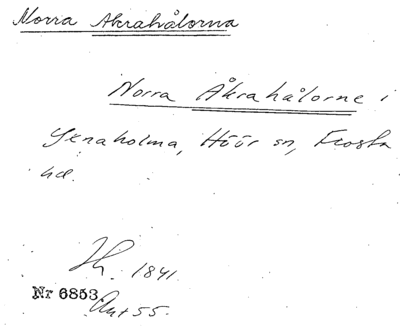 Norra Åkrahålorna
Norra Åkrahålorne i
Yxnaholma, Höör sn, Frosta
hd.
Lh. 1841
Nr 6853
Akt 55.